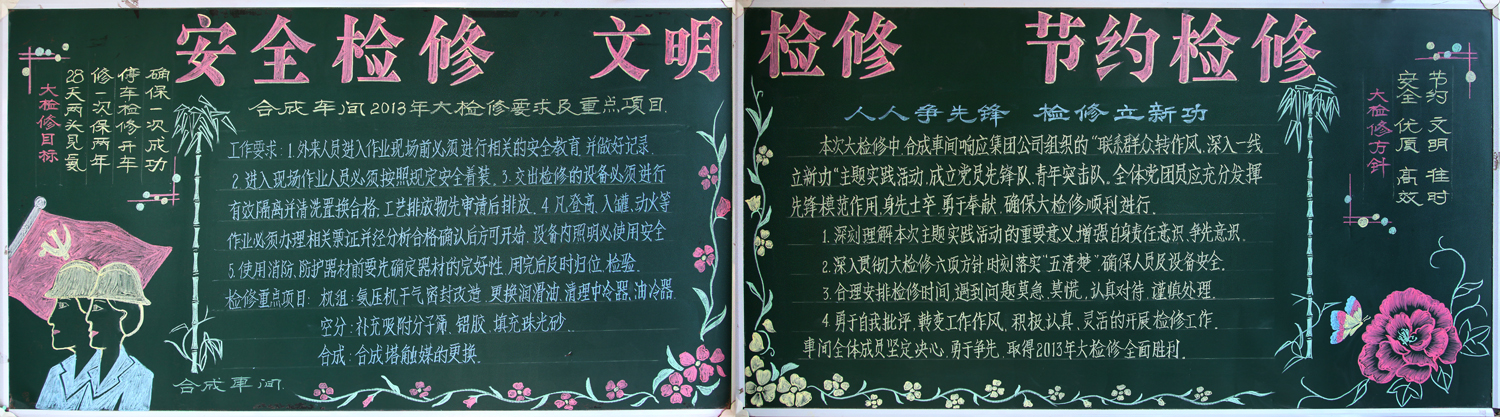 安全检修 文明检修 节约检修
确保一次成功
停车检修开车
修一次保两年
28天两头见氨
大检修目标
合成车间2013年大检修要求及重点项目
工作要求：1.外来人员进入作业现场前必须进行相关的安全教育，并做好记录.
2.进入现场作业人员必须按照规定安全着装。3.交出检修的设备必须进行
有效隔离并清洗置换合格，工艺排放物先申请后排放。4.凡登高、入罐、动火等
作业必须办理相关票证并经分析合格确认后方可开始，设备内照明必使用安全
5.使用消防、防护器材前要先确定器材的完好性，用完后及时归位、检验.
检修重点项目：机组：氨压机干气密封改进，更换润滑油，清理中冷器、油冷器.
空分：补充吸附分子筛、铝胶，填充珠光砂.
合成：合成塔触媒的更换.
合成车间.
人人争先锋 检修立新功
本次大检修中，合成车间响应集团公司组织的“联系群众转作风，深入一线
立新功”主题实践活动，成立党员先锋队、青年突击队。全体党团员应充分发挥
先锋模范作用，身先士卒，勇于奉献，确保大检修顺利进行.
1.深刻理解本次主题实践活动的重要意义，增强自身责任意识、争先意识.
2.深入贯彻大检修六项方针，时刻落实“五清楚”，确保人员及设备安全.
3.合理安排检修时间，遇到问题莫急、莫慌，认真对待，谨慎处理.
4.勇于自我批评，转变工作作风，积极认真、灵活的开展检修工作.
车间全体成员坚定决心，勇于争先，取得2013年大检修全面胜利.
节约 文明 准时
安全 优质 高效
大检修方针